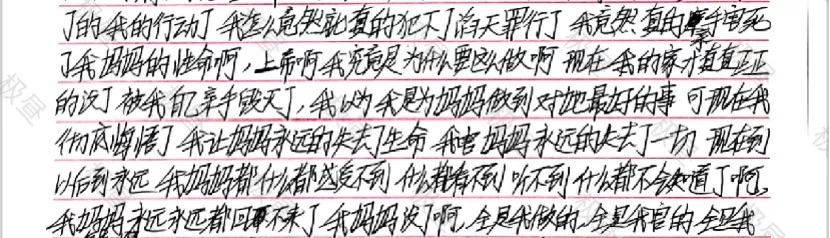 了的我的行动了 我怎么竟然就真的犯下了滔天罪行了 我竟然真的亲手害死
了我妈妈的性命啊，上帝啊我究竟是为什么要这么做啊 现在我的家才真真正正
的没了 被我自己亲手毁灭了，我以为我是为妈妈做到对她最好的事 可现在我
彻底悔悟了 我让妈妈永远的失去了生命 我害妈妈永远的失去了一切 现在到
以后到永远 我妈妈都什么都感受不到 什么都看不到 听不到 什么都不会知道了啊，
我妈妈永远永远都回不来了 我妈妈没了啊，全是我做的，全是我害的 全是我
极昼